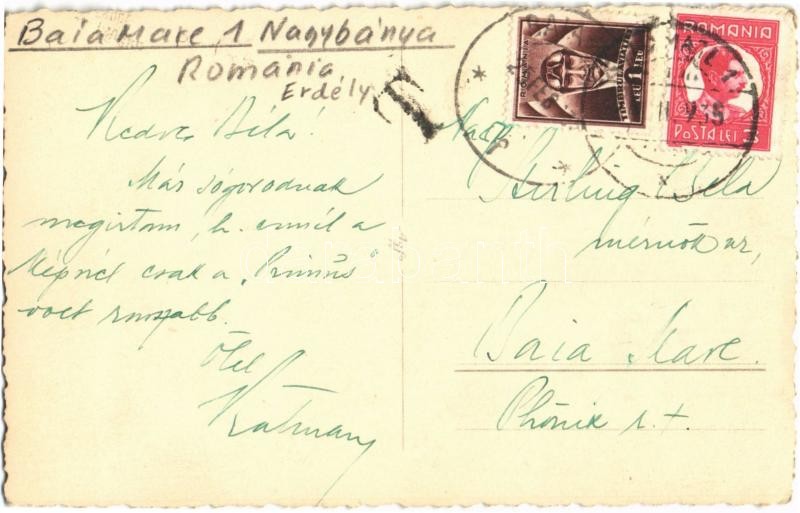 Baia Mare 1 Nagybánya
Románia
Erdély
T
ROMANIA
1 LEU
TIMBRUL AVIAȚIEI
ROMANIA
POSTA LEI 3
Kedves Béla!
Már sógorodnak
megirtam, h. ennél a
képnél csak a "Primus"
volt rosszabb.
Ölel
Kálmán
Nagys.
Béla
mérnök ur,
Baia Mare.
Phönix r.t.